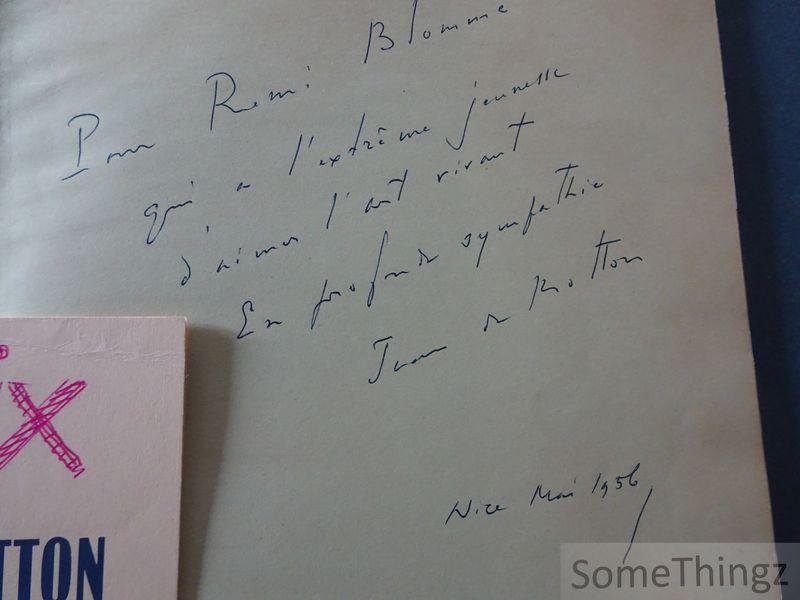 Pour Remi Blomme
qui a l'extrême jeunesse
d'aimer l'art vivant
En profonde sympathie
Jean de Botton
Nice Mai 1956
ix
TTON
SomeThingz